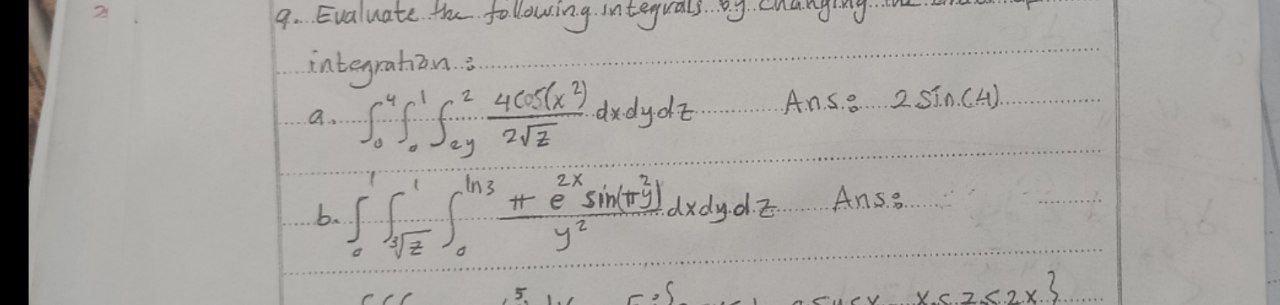 9. Evaluate the following integrals by changing the
integration:
a. ∫₀⁴ ∫₀¹ ∫₂ᵧ² 4cos(x²)/2√z dxdydz Ans: 2 sin(4)
b. ∫₀¹ ∫_∛z^1 ∫₀^ln3 π e^2x sin(πy²)/y² dxdydz Ans: